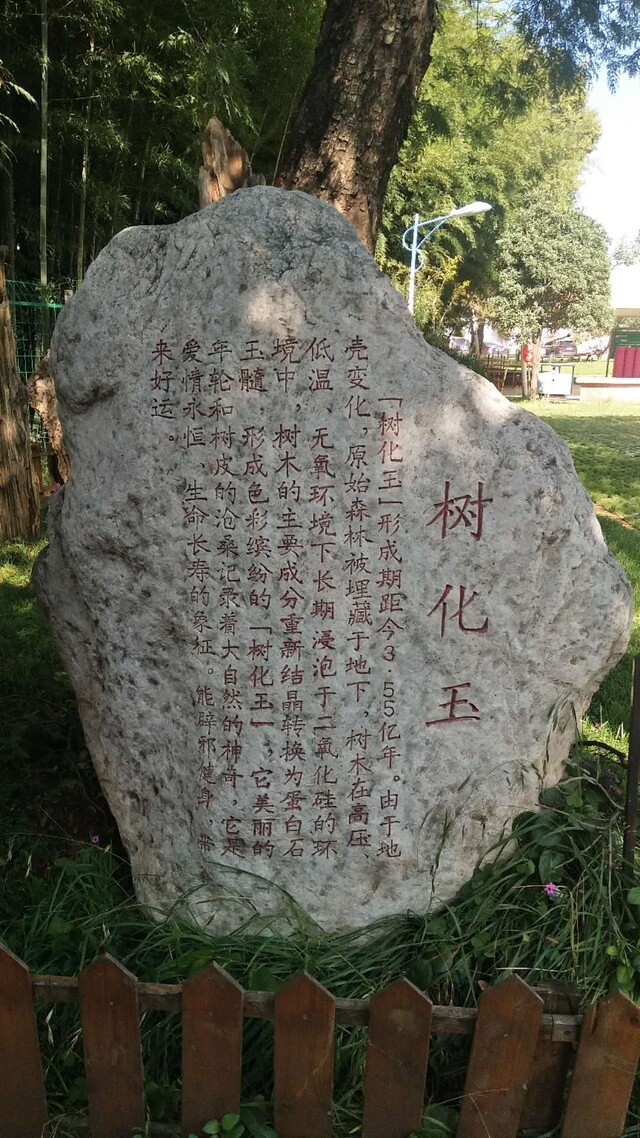 树化玉
「树化玉」形成期距今3.55亿年。由于地
壳变化，原始森林被埋藏于地下，树木在高压、
低温、无氧环境下长期浸泡于二氧化硅的环
境中，树木的主要成分重新结晶转换为蛋白石
玉髓，形成色彩缤纷的「树化玉」，它美丽的
年轮和树皮的沧桑记录着大自然的神奇，它是
爱情永恒、生命长寿的象征。能辟邪健身，带
来好运。